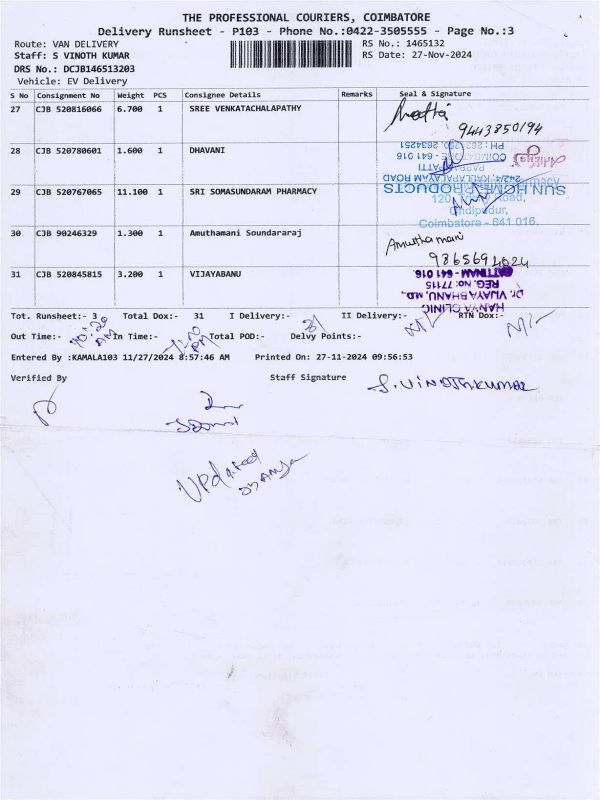 THE PROFESSIONAL COURIERS, COIMBATORE
Delivery Runsheet - P103 - Phone No.:0422-3505555 - Page No.:3
Route: VAN DELIVERY RS No.: 1465132
Staff: S VINOTH KUMAR RS Date: 27-Nov-2024
DRS No.: DCJB146513203
Vehicle: EV Delivery
S No Consignment No Weight PCS Consignee Details Remarks Seal & Signature
27 CJB 520816066 6.700 1 SREE VENKATACHALAPATHY
9443850194
28 CJB 520780601 1.600 1 DHAVANI
PH : 2634251
COIMBATORE - 641 016
242/4, KALLAPALAYAM ROAD
SUN HOME PRODUCTS
29 CJB 520767065 11.100 1 SRI SOMASUNDARAM PHARMACY
Coimbatore - 641 016.
30 CJB 90246329 1.300 1 Amuthamani Soundararaj
Amuthamani
9865694024
31 CJB 520845815 3.200 1 VIJAYABANU
HANYA CLINIC,
Dr. VIJAYABHANU, M.D.,
REG. No: 77115
641 016.
Tot. Runsheet:- 3 Total Dox:- 31 I Delivery:- 31 II Delivery:- RTN Dox:-
Out Time:- 10:20 AM In Time:- Total POD:- Delvy Points:-
Entered By :KAMALA103 11/27/2024 8:57:46 AM Printed On: 27-11-2024 09:56:53
Verified By Staff Signature
S. VINOTHKUMAR
Updated